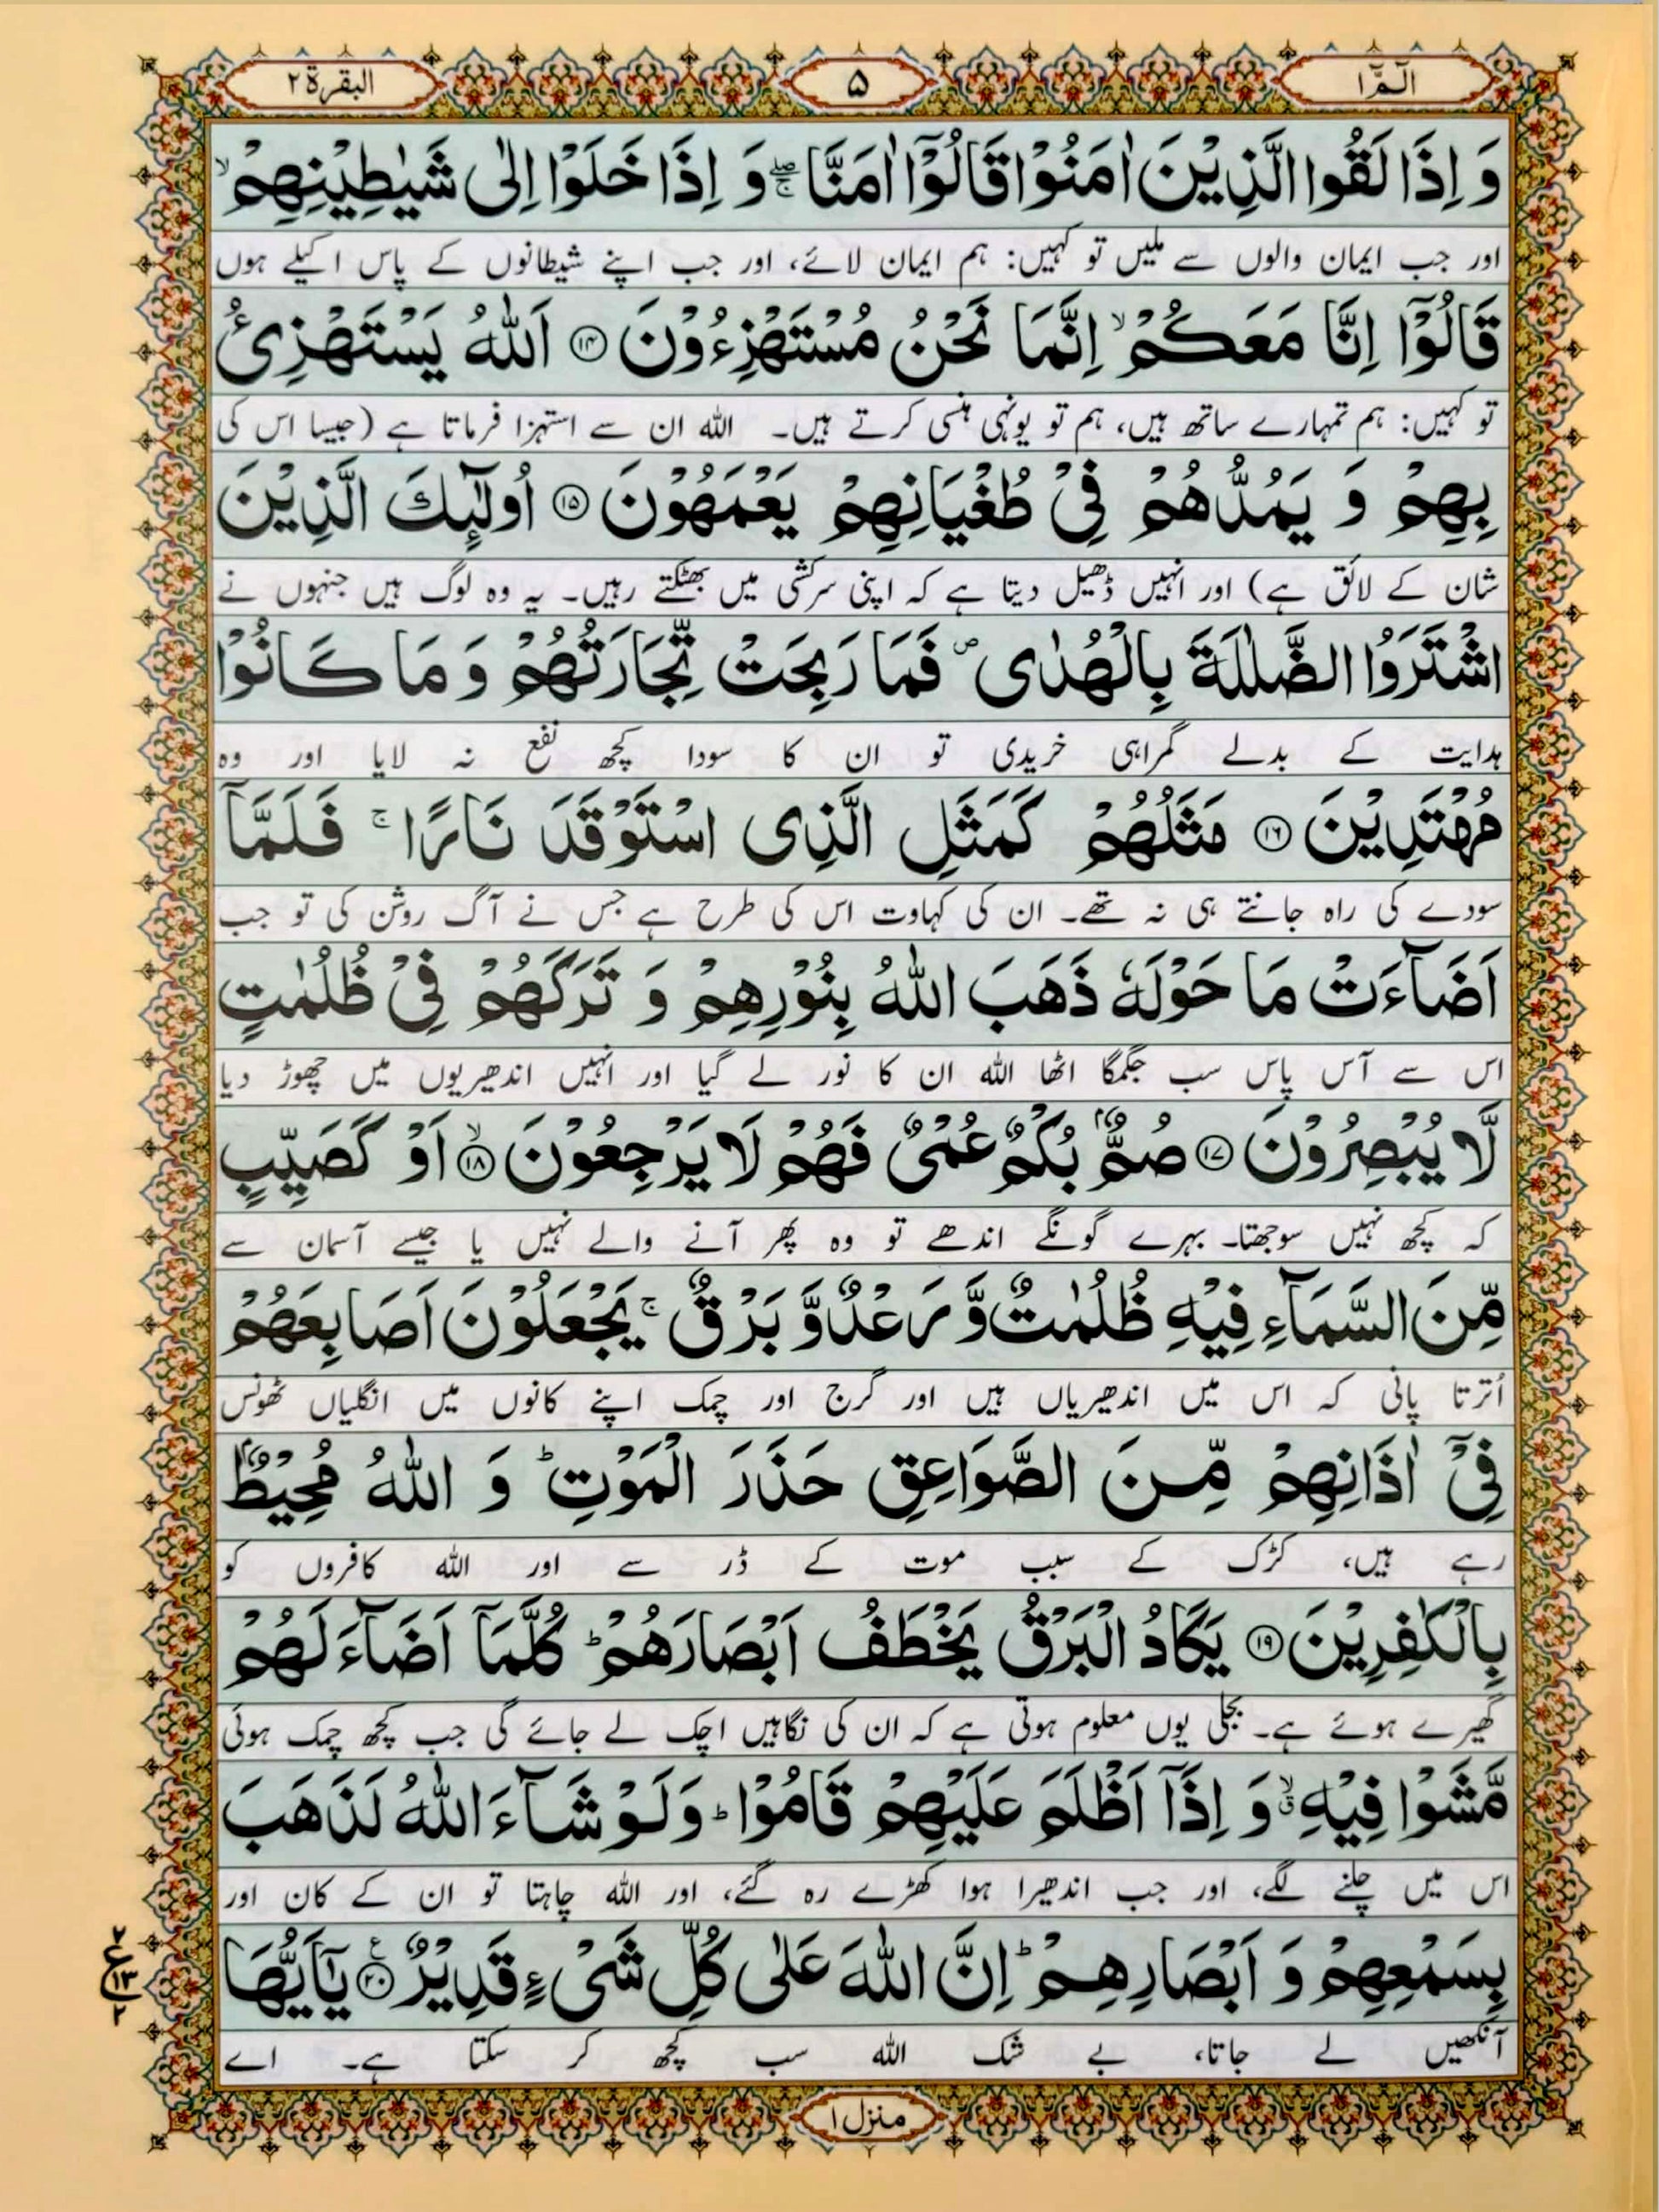 الٓمّٓ ۱
۵
البقرة ۲
وَ اِذَا لَقُوا الَّذِيْنَ اٰمَنُوْا قَالُوْۤا اٰمَنَّا ۖۚ وَ اِذَا خَلَوْا اِلٰى شَيٰطِيْنِهِمْ ۙ
اور جب ایمان والوں سے ملیں تو کہیں: ہم ایمان لائے، اور جب اپنے شیطانوں کے پاس اکیلے ہوں
قَالُوْۤا اِنَّا مَعَكُمْ ۙ اِنَّمَا نَحْنُ مُسْتَهْزِءُوْنَ ۝۱۴ اَللّٰهُ يَسْتَهْزِئُ
تو کہیں: ہم تمہارے ساتھ ہیں، ہم تو یونہی ہنسی کرتے ہیں۔ اللہ ان سے استہزا فرماتا ہے (جیسا اس کی
بِهِمْ وَ يَمُدُّهُمْ فِيْ طُغْيَانِهِمْ يَعْمَهُوْنَ ۝۱۵ اُولٰٓئِكَ الَّذِيْنَ
شان کے لائق ہے) اور انہیں ڈھیل دیتا ہے کہ اپنی سرکشی میں بھٹکتے رہیں۔ یہ وہ لوگ ہیں جنہوں نے
اشْتَرَوُا الضَّلٰلَةَ بِالْهُدٰى ۪ فَمَا رَبِحَتْ تِّجَارَتُهُمْ وَ مَا كَانُوْا
ہدایت کے بدلے گمراہی خریدی تو ان کا سودا کچھ نفع نہ لایا اور وہ
مُهْتَدِيْنَ ۝۱۶ مَثَلُهُمْ كَمَثَلِ الَّذِى اسْتَوْقَدَ نَارًا ۚ فَلَمَّاۤ
سودے کی راہ جانتے ہی نہ تھے۔ ان کی کہاوت اس کی طرح ہے جس نے آگ روشن کی تو جب
اَضَآءَتْ مَا حَوْلَهٗ ذَهَبَ اللّٰهُ بِنُوْرِهِمْ وَ تَرَكَهُمْ فِيْ ظُلُمٰتٍ
اس سے آس پاس سب جگمگا اٹھا اللہ ان کا نور لے گیا اور انہیں اندھیریوں میں چھوڑ دیا
لَّا يُبْصِرُوْنَ ۝۱۷ صُمٌّۢ بُكْمٌ عُمْيٌ فَهُمْ لَا يَرْجِعُوْنَ ۝۱۸ ۙ اَوْ كَصَيِّبٍ
کہ کچھ نہیں سوجھتا۔ بہرے گونگے اندھے تو وہ پھر آنے والے نہیں یا جیسے آسمان سے
مِّنَ السَّمَآءِ فِيْهِ ظُلُمٰتٌ وَّ رَعْدٌ وَّ بَرْقٌ ۚ يَجْعَلُوْنَ اَصَابِعَهُمْ
اُترتا پانی کہ اس میں اندھیریاں ہیں اور گرج اور چمک اپنے کانوں میں انگلیاں ٹھونس
فِيْۤ اٰذَانِهِمْ مِّنَ الصَّوَاعِقِ حَذَرَ الْمَوْتِ ؕ وَ اللّٰهُ مُحِيْطٌۢ
رہے ہیں، کڑک کے سبب موت کے ڈر سے اور اللہ کافروں کو
بِالْكٰفِرِيْنَ ۝۱۹ يَكَادُ الْبَرْقُ يَخْطَفُ اَبْصَارَهُمْ ؕ كُلَّمَاۤ اَضَآءَ لَهُمْ
گھیرے ہوئے ہے۔ بجلی یوں معلوم ہوتی ہے کہ ان کی نگاہیں اچک لے جائے گی جب کچھ چمک ہوئی
مَّشَوْا فِيْهِ ۙۗ وَ اِذَاۤ اَظْلَمَ عَلَيْهِمْ قَامُوْا ؕ وَ لَوْ شَآءَ اللّٰهُ لَذَهَبَ
اس میں چلنے لگے، اور جب اندھیرا ہوا کھڑے رہ گئے، اور اللہ چاہتا تو ان کے کان اور
بِسَمْعِهِمْ وَ اَبْصَارِهِمْ ؕ اِنَّ اللّٰهَ عَلٰى كُلِّ شَيْءٍ قَدِيْرٌ ۝۲۰ ع يٰۤاَيُّهَا
۲ ع ۱۳ ۲
آنکھیں لے جاتا، بے شک اللہ سب کچھ کر سکتا ہے۔ اے
منزل ۱